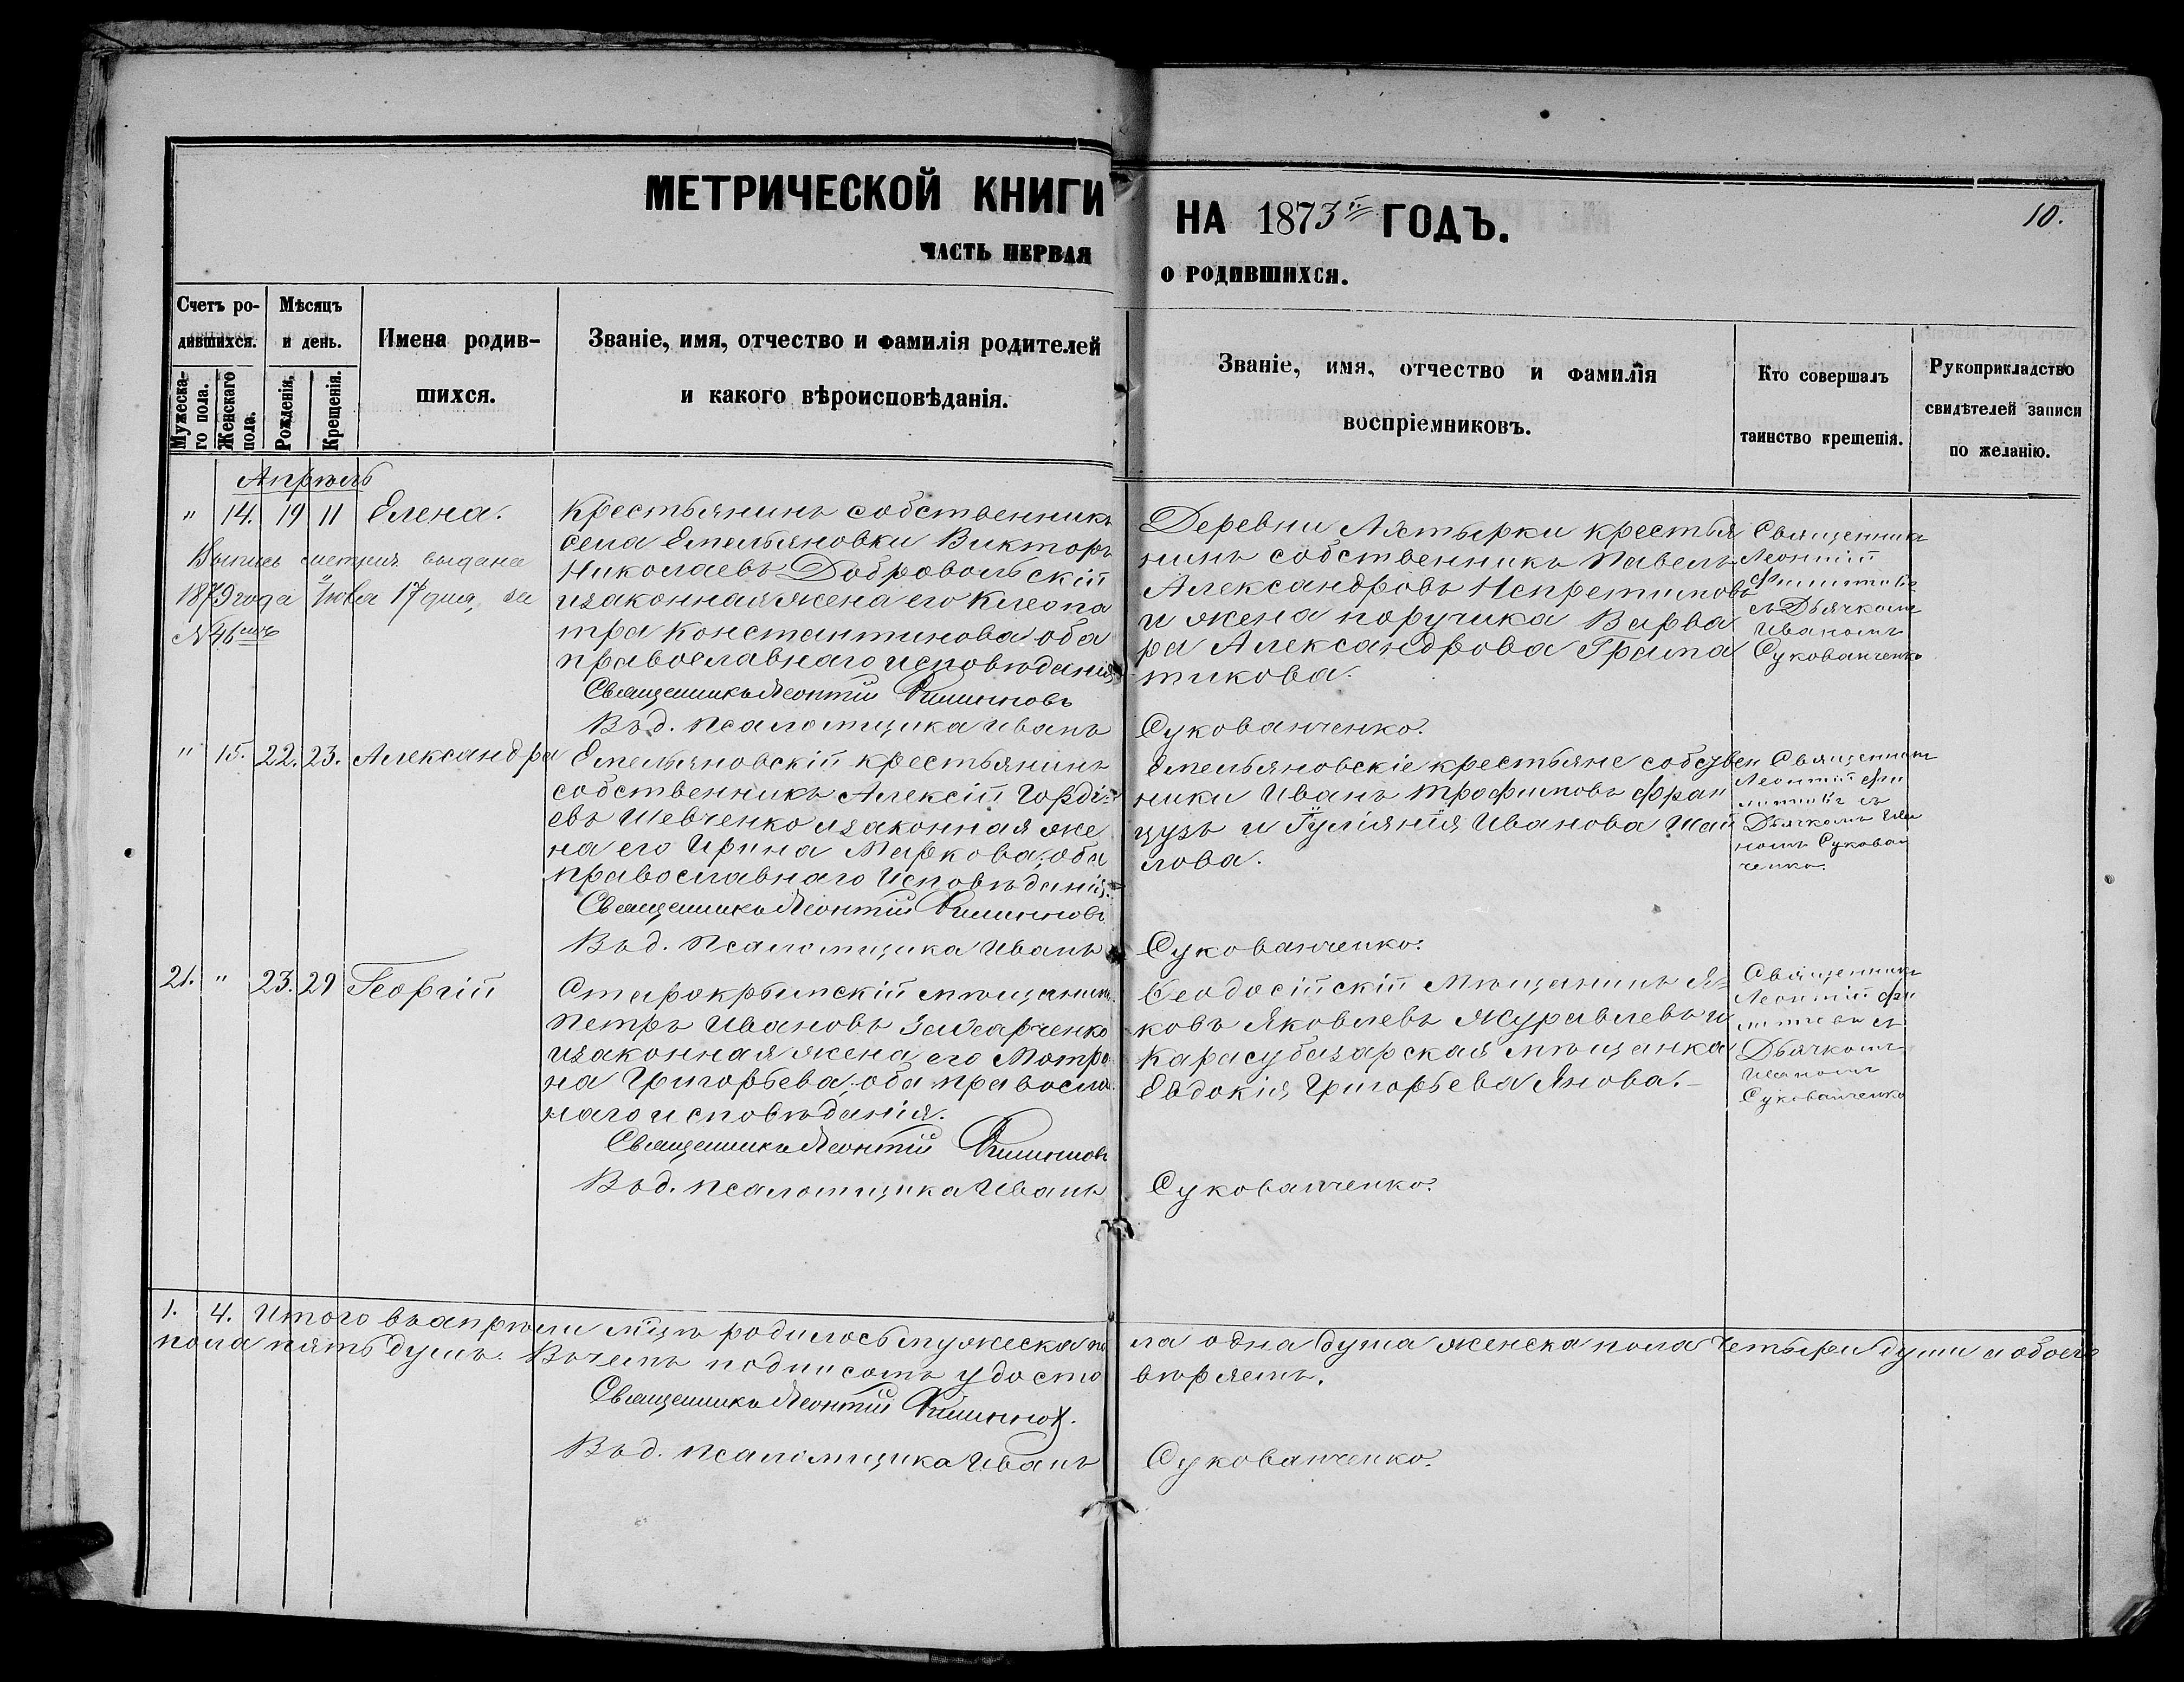 МЕТРИЧЕСКОЙ КНИГИ НА 1873й ГОДЪ.
10.
ЧАСТЬ ПЕРВАЯ О РОДИВШИХСЯ.
Счетъ ро-
дившихся.
Мужеска-
го пола.
Женскаго
пола.
Мѣсяцъ
и день.
Рожденія.
Крещенія.
Имена родив-
шихся.
Званіе, имя, отчество и фамилія родителей
и какого вѣроисповѣданія.
Званіе, имя, отчество и фамилія
воспріемниковъ.
Кто совершалъ
таинство крещенія.
Рукоприкладство
свидѣтелей записи
по желанію.
Апрѣль
" 14. 19 11 Елена.
Выпись метрич выдана
1879 года Іюва 17 дня, за
№ 46
Крестьянинъ собственникъ
села Емельяновки Викторъ
Николаевъ Добровольскій
и законная жена его Клеопа
тра Константинова оба
православнаго исповѣданія
Священникъ Леонтій Филипповъ
В. д. псаломщика Иванъ
Деревни крестья
нинъ собственникъ Павелъ
Александровъ
и жена поручика Варва
ра Александрова Грама
тикова.
Сукованченко.
Священникъ
Леонтій
Филипповъ
съ Дьячкомъ
Иваномъ
Сукованченко
" 15. 22. 23. Александра
Емельяновскій крестьянинъ
собственникъ Алексій Гордѣ
евъ Шевченко и законная же
на его Ирина Маркова, оба
православнаго исповѣданія.
Священникъ Леонтій Филипповъ
В. д. Псаломщика Иванъ
Емельяновскіе крестьяне собствен
ники Иванъ Трофимовъ Фран
цузъ и Іуліянія Иванова Шай
лова.
Сукованченко.
Священникъ
Леонтій Фи
липповъ съ
Дьячкомъ Ива
номъ Сукован
ченко.
21. " 23. 29 Георгій
Старокрымскій мѣщанинъ
Петръ Ивановъ Захарченко
и законная жена его Мотро
на Григорьева, оба правосла
наго исповѣданія.
Священникъ Леонтій Филипповъ
В. д. псаломщика Иванъ
Ѳеодосійскій Мѣщанинъ Я=
ковъ Яковлевъ Журавлевъ и
Карасубазарская мѣщанка
Евдокія Григорьева Янова.-
Сукованченко.
Священникъ
Леонтій Фи
липповъ съ
Дьячкомъ
Иваномъ
Сукованченко
1. 4. Итого въ апрѣли мцѣ родилось мужеска по ла одна душа женска пола четыри души а обоего
пола пять душъ. Въ чемъ подписомъ удосто вѣряемъ.
Священникъ Леонтій Филипповъ.
В. д. псаломщика Иванъ Сукованченко.